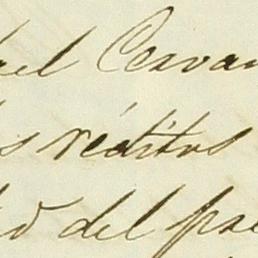 el Cervan
s réditos
d del pre